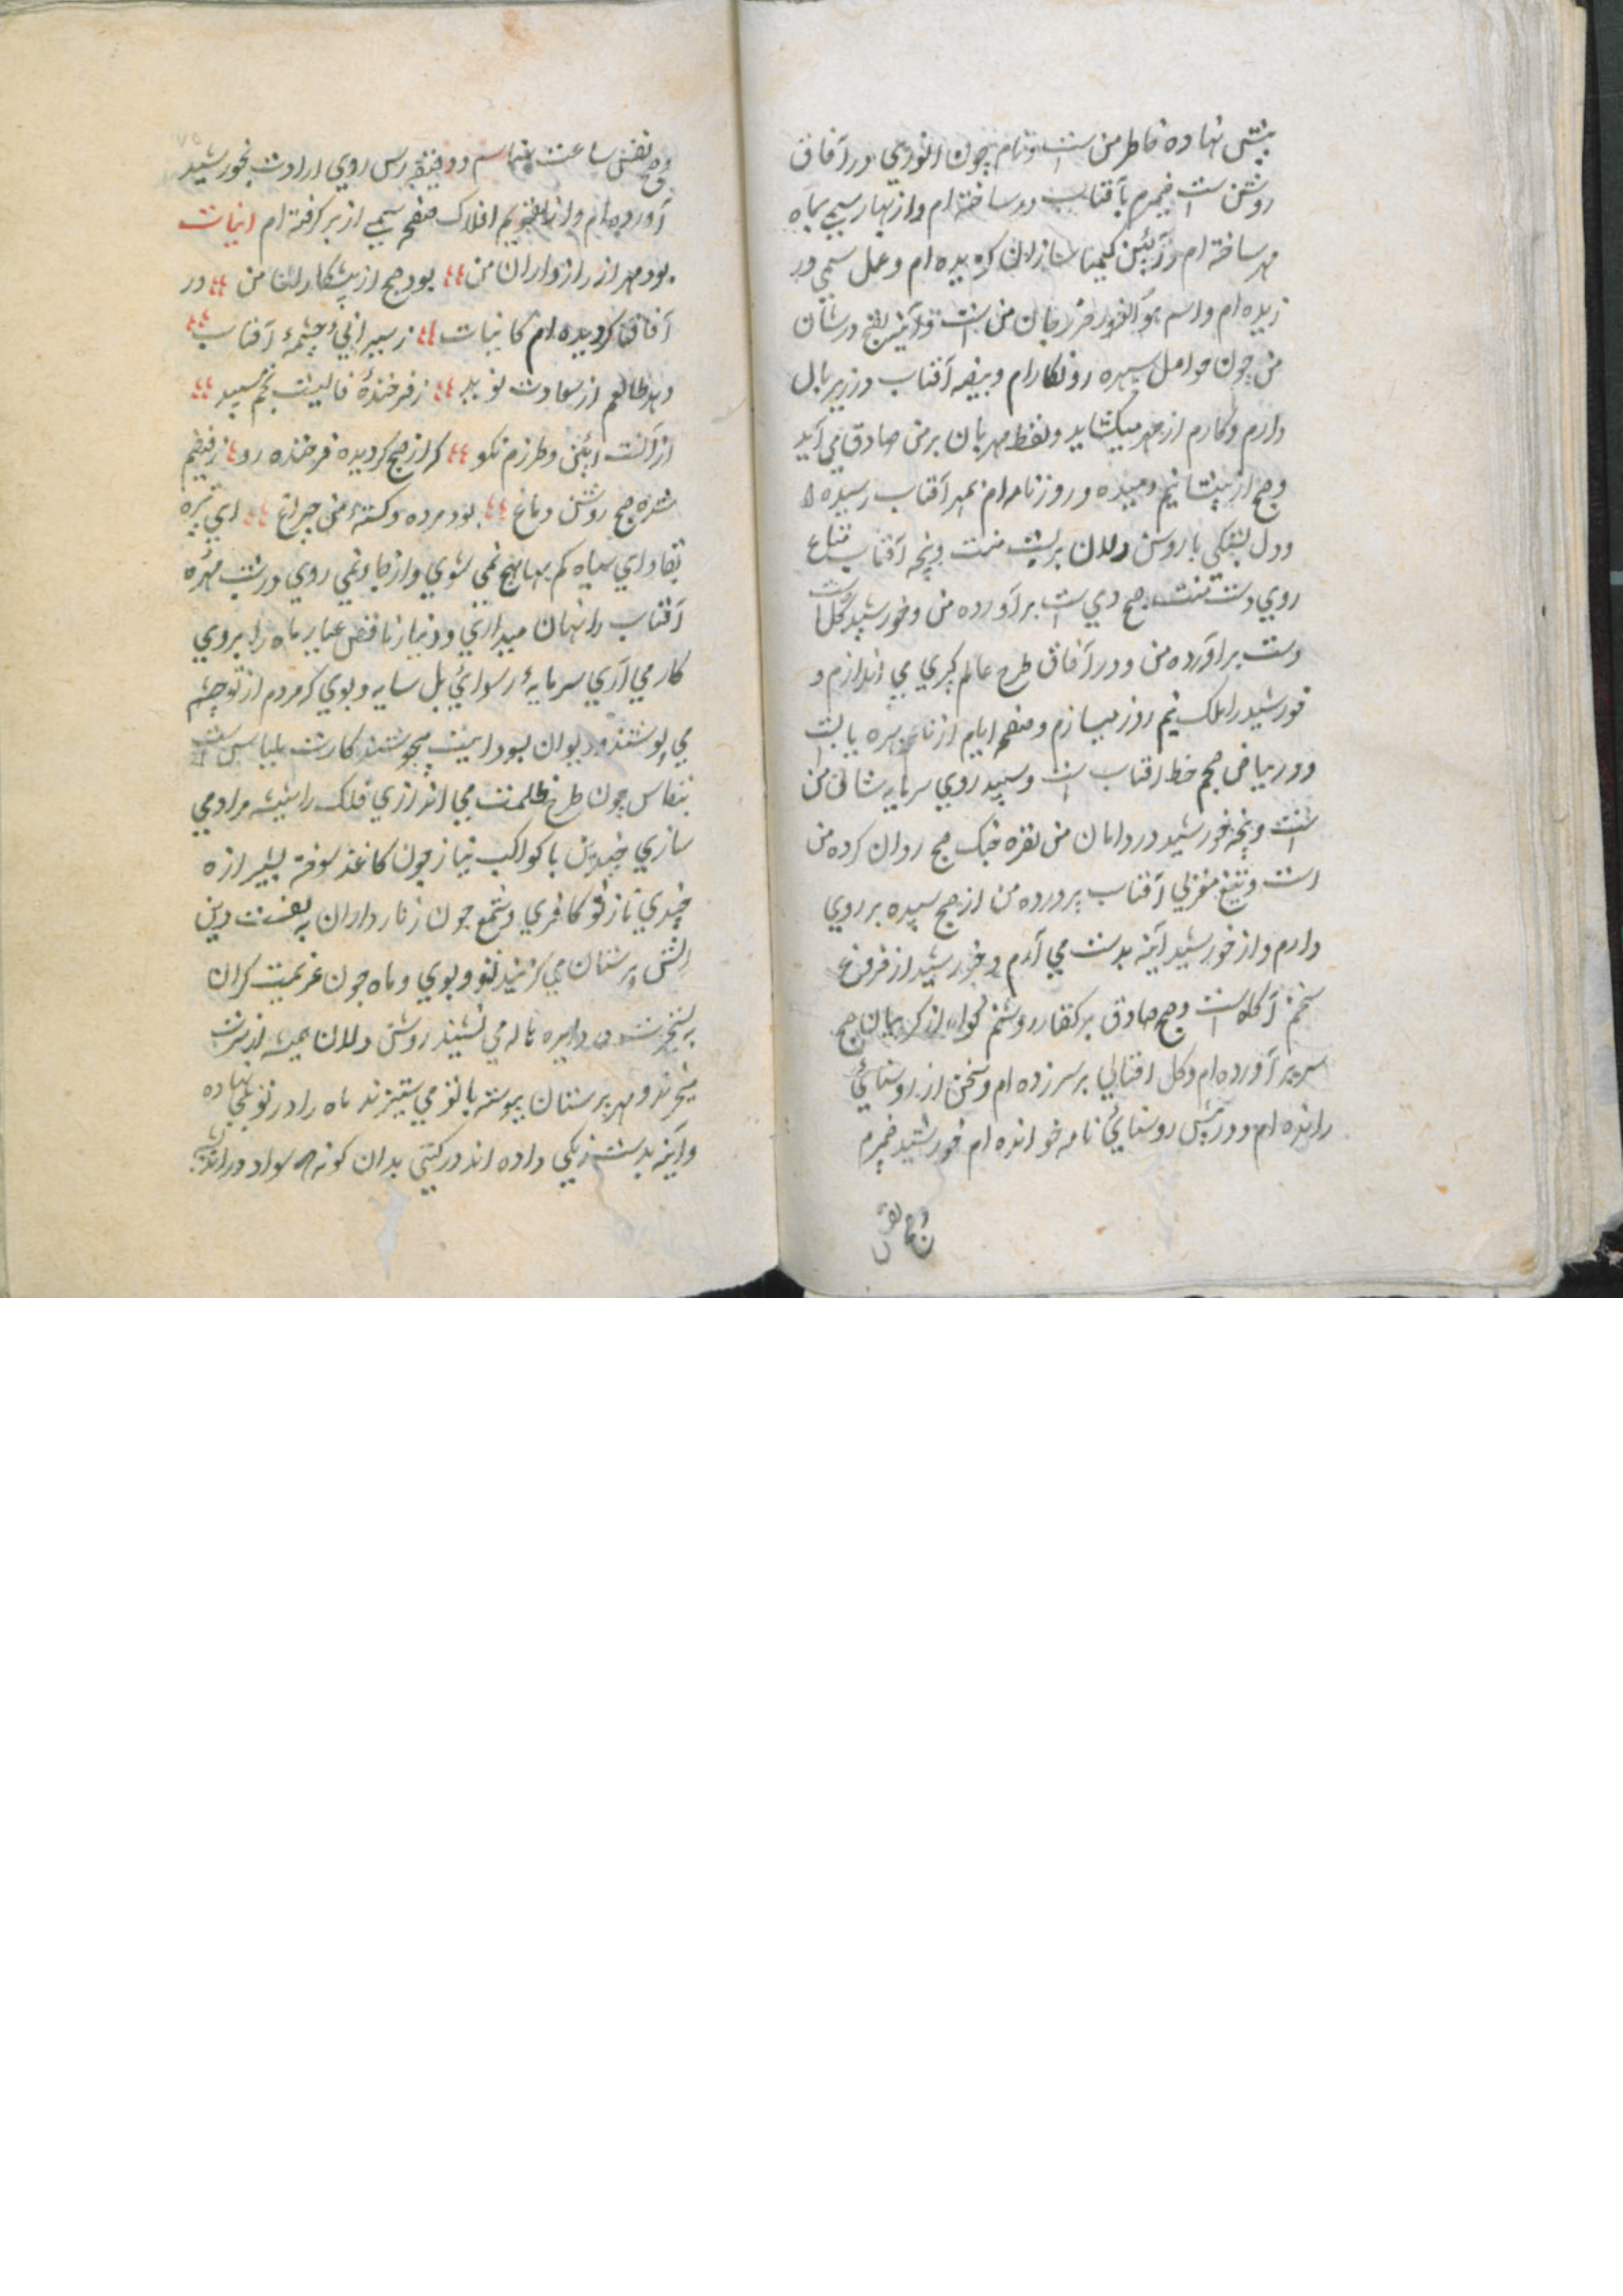 پیش نهاده خاطر من ست و نام چون انوری در آفاق
روشن ست ضمیرم بآفتاب در ساخته ام و از بهار سیمی بماه
مهر ساخته ام و آیین کیمیا سازان گزیده ام و عمل سیمی در
زیده ام و اسم هو النور حرز جان من ست و آیتین فتح در شان
من چون حوامل سپهره رونکارام و بیضه آفتاب در زیر بال
دارم و کارم از مهر میگشاید و لفظ مهربان بر من صادق می آید
و صبح از پیشانیم دمیده و روزنامه ام بمهر آفتاب رسیده
و دل بستگی با روشن دلان بر پشت منت و پنجه آفتاب شعاع
روی دست منت صبح دی ست برآورده من و خورشید گل
دست برآورده من و در آفاق طرح عالم گیری می اندازم و
خورشید را ملک نیم روز میسازم و صفحه ایام از نام بهره یابت
و در بیاض صبحم خط آفتاب ست و سپید روی سرمایه شان من
ست و پنجه خورشید در دامان من نقره خنک صبح روان کرده من
است و تیغ مغربی آفتاب پرورده من از صبح سپیده بر روی
دارم و از خورشید آینه بدست می آرم و خورشید از فروغ
سخنم آگاه ست و صبح صادق بر گفتار روشنم گواه از گریبان صبح
سر بر آورده ام و گل آفتابی بر سر زده ام و سخن از روشنائی
رانده ام و در پیش روشنائی نامه خوانده ام خورشید ضمیرم
و صبح نفس
و صبح نفس ساعت شناسم و دقیقه رس روی ارادت بخورشید
آورده ام و از تقویم افلاک صفحه سیمی از بر گرفته ام ابیات
بود مهر از رازداران من بود صبح از پیشکاران من در
آفاق گردیده ام کامیاب ز سیرابی چشمه آفتاب
دهد طالعم از سعادت نوید ز فرخندهٔ فالیست نجم سپید
از آنست آیین و طرزم نکو که از صبح گردیده فرخنده رو ز فیضم
شده صبح روشن دماغ بود مرده و کشتهٔ من چراغ ای تیره
بقا و ای سیاه کم بها هیچ نمی شوی و از جا نمی روی در شب مهرهٔ
آفتاب را نهان میداری و دنیار ناقص عیار ماه را بروی
کار می آری سرمایهٔ رسوائی بل سایه و بوی که مردم از تو چشم
می پوشند و دیوان بسودایت میجوشند کارت بلباس ست
بنفاس چون طرح ظلمت می اندازی فلک را شیشه مراد می
سازی چندین با کواکب نیاز چون کاغذ سوخته بشیرازه
چندی ناز تو کافری و شمع چون زناردارن به بغیت دین
آتش پرستان می گزیند تو و بوی و ماه چون عزیمت گران
به تسخیرت در دایره هاله می نشیند روشن دلان همیشه از تیرت
میخرند و مهرپرستان پیوسته با تو می ستیزند ماه را در تو بکی نهاده
و آینه بدست زنگی داده اند در گیتی بدان گونه سواد در